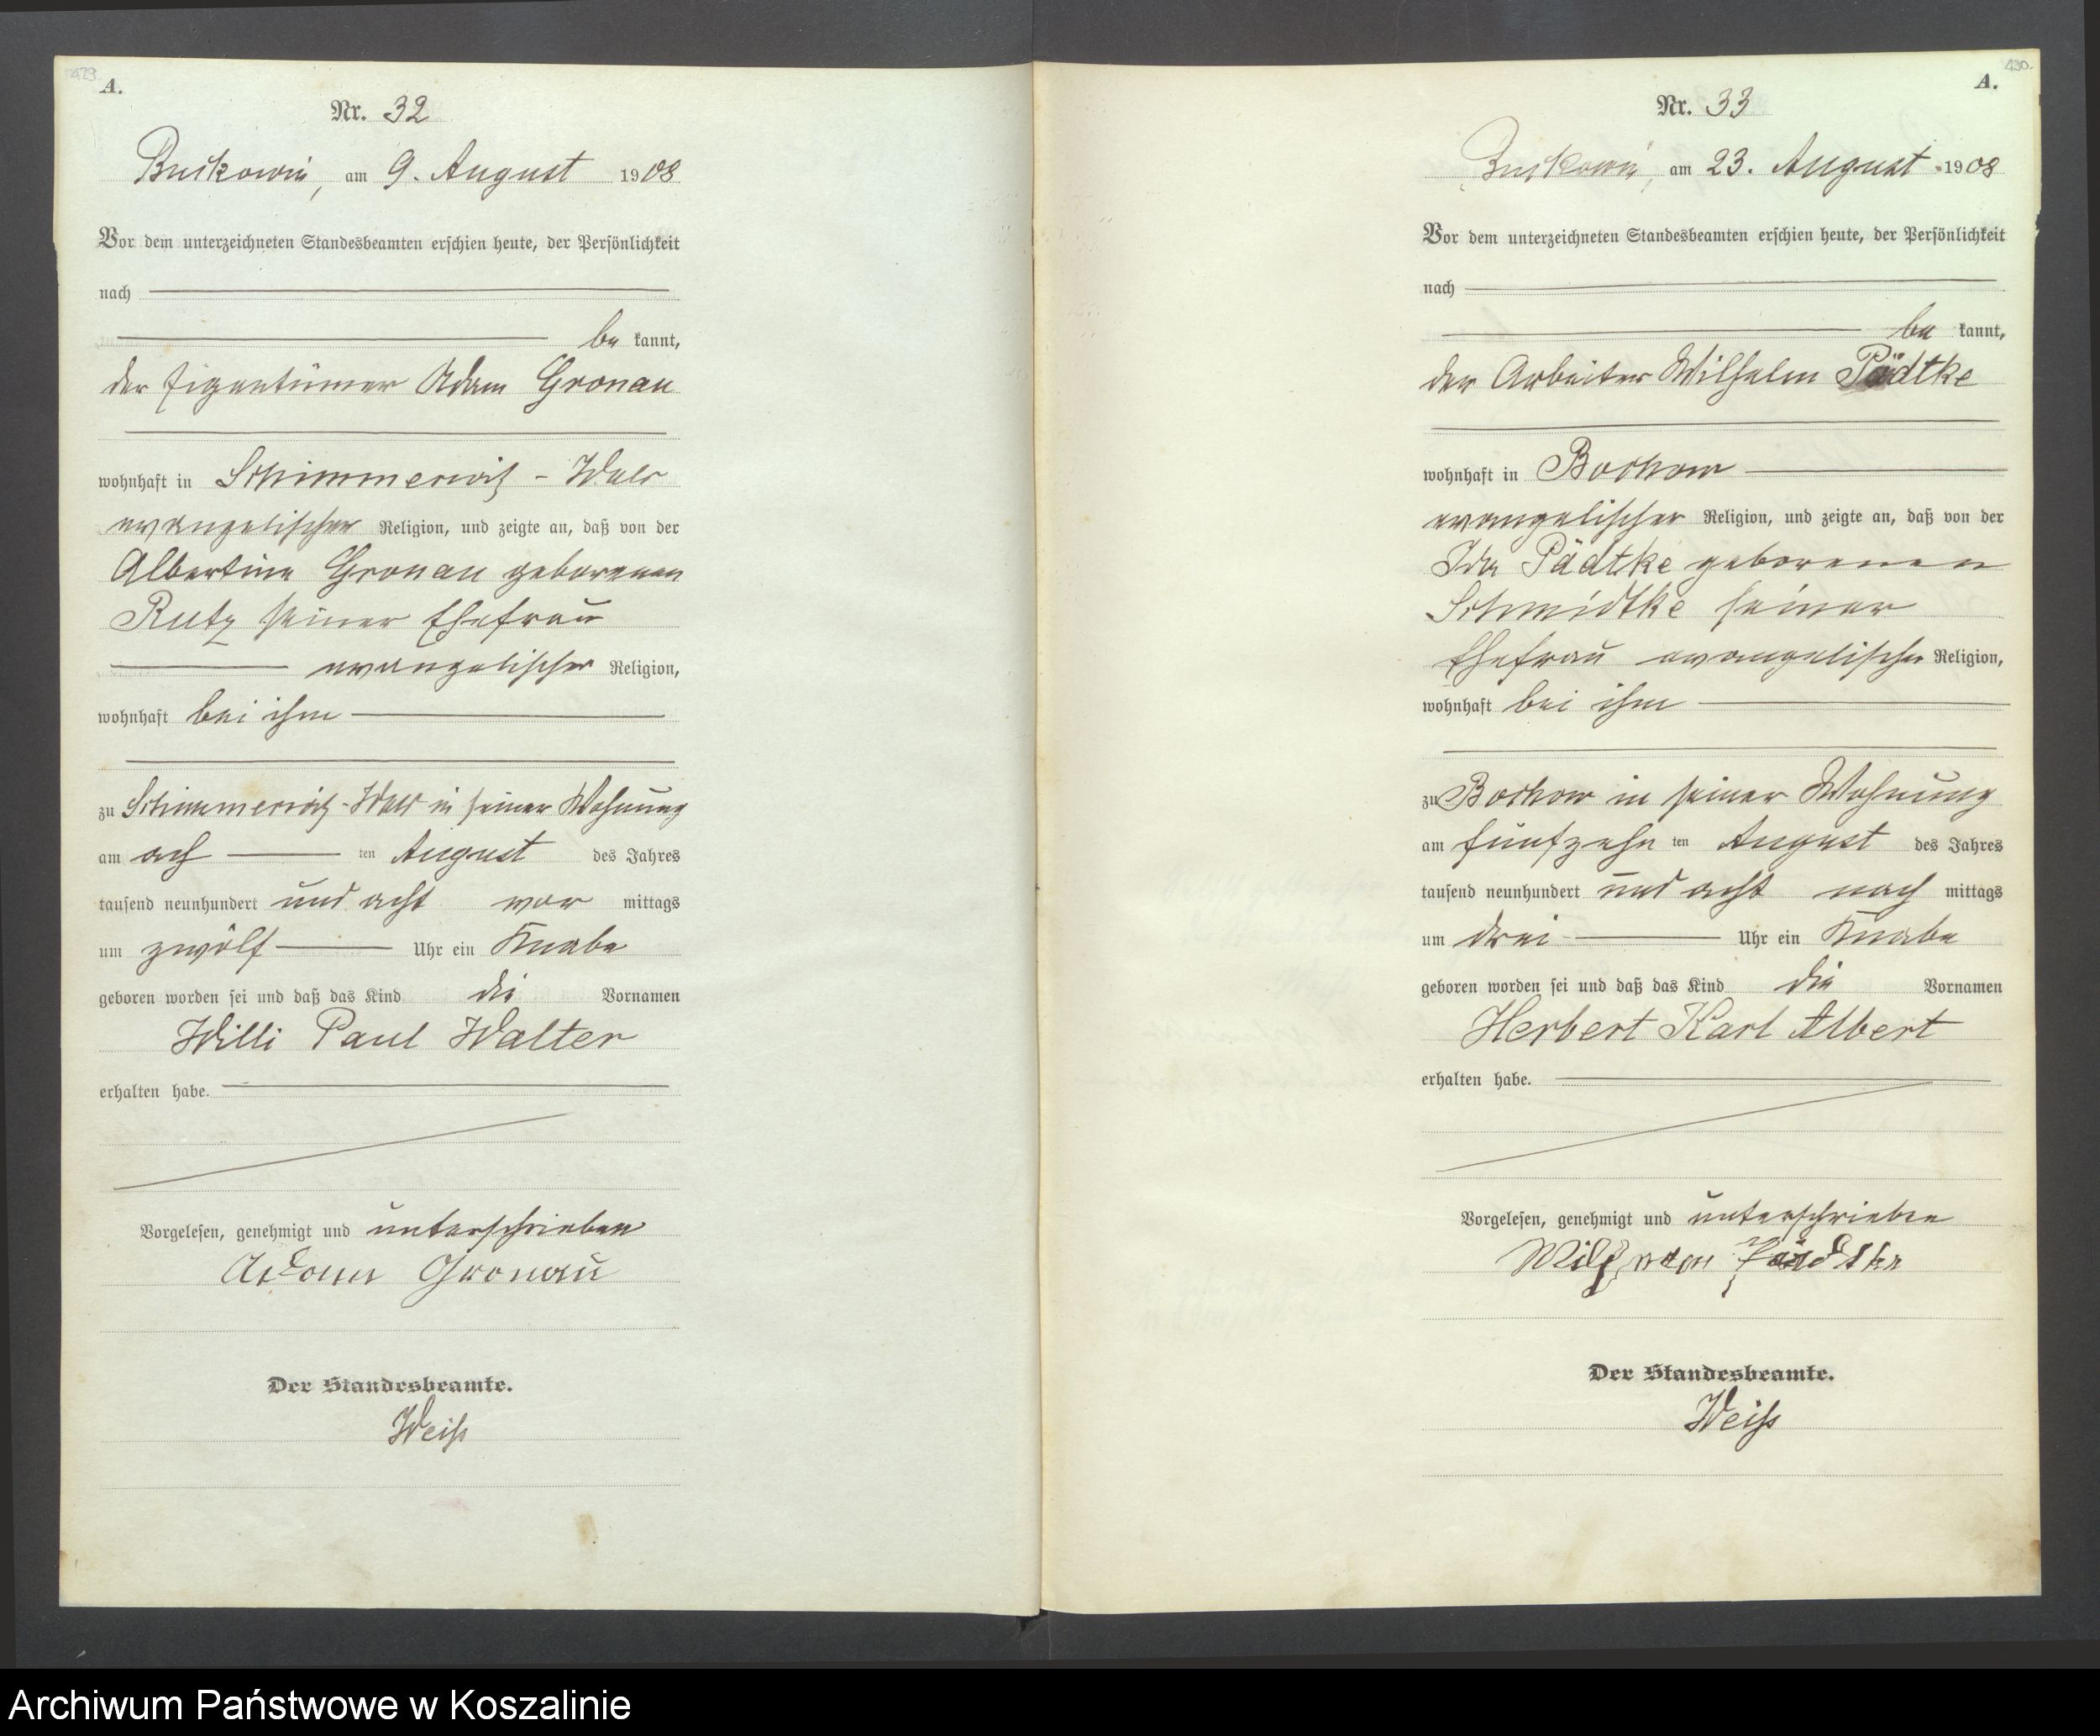 429.
A.
Nr. 32
Buckowin, am 9. August 1908
Vor dem unterzeichneten Standesbeamten erschien heute, der Persönlichkeit
nach
be kannt,
der Eigentümer Adam Gronau
wohnhaft in Schimmerwitz - Wald
evangelischer Religion, und zeigte an, daß von der
Albertine Gronau geborenen
Rutz seiner Ehefrau
evangelischer Religion,
wohnhaft bei ihm
zu Schimmerwitz - Wald in seiner Wohnung
am ach ten August des Jahres
tausend neunhundert und acht vor mittags
um zwölf Uhr ein Knabe
geboren worden sei und daß das Kind die Vornamen
Willi Paul Walter
erhalten habe.
Vorgelesen, genehmigt und unterschrieben
Adam Gronau
Der Standesbeamte.
Weiß
430.
A.
Nr. 33
Buckowin, am 23. August 1908
Vor dem unterzeichneten Standesbeamten erschien heute, der Persönlichkeit
nach
be kannt,
der Arbeiter Wilhelm Pädtke
wohnhaft in Bochow
evangelischer Religion, und zeigte an, daß von der
Ida Pädtke geborenen
Schmidtke seiner
Ehefrau evangelischer Religion,
wohnhaft bei ihm
zu Bochow in seiner Wohnung
am fünfzehn ten August des Jahres
tausend neunhundert und acht nach mittags
um drei Uhr ein Knabe
geboren worden sei und daß das Kind die Vornamen
Herbert Karl Albert
erhalten habe.
Vorgelesen, genehmigt und unterschrieben
Wilhelm Pädtke
Der Standesbeamte.
Weiß
Archiwum Państwowe w Koszalinie